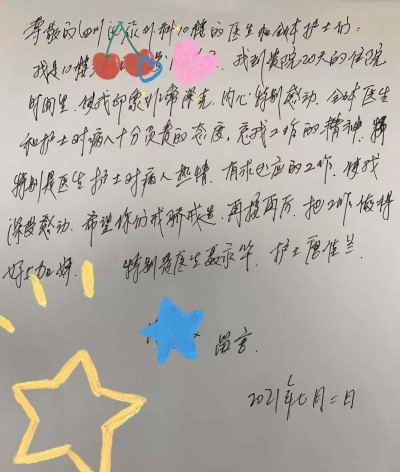 尊敬的四川 医院外科10楼的医生和全体护士们:
我是10楼 我到贵院20天的住院
时间里，使我印象非常深先，内心特别感动，全体医生
和护士对病人十分负责的态度，忘我工作的精神，特
特别是医生护士对病人热情，有求必应的工作，使我
深受感动，希望你们戒骄戒燥，再接再厉，把工作做得
好上加好。 特别是医生聂 华，护士唐佳兰
留言.
2021年七月二日